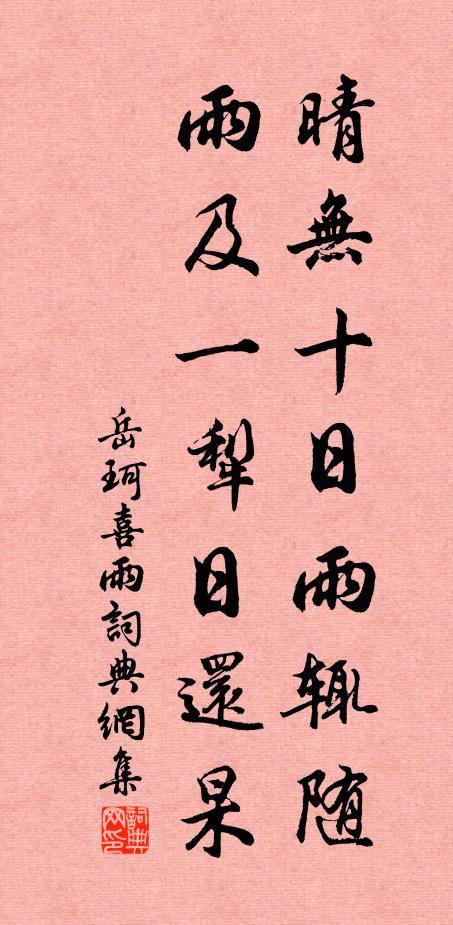 晴無十日雨辄随
雨及一犁日還杲
岳珂喜雨詞典網集
詞典网印